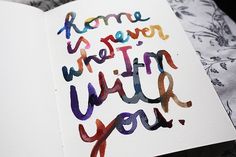 home
is
wherever
I'm
with
you.